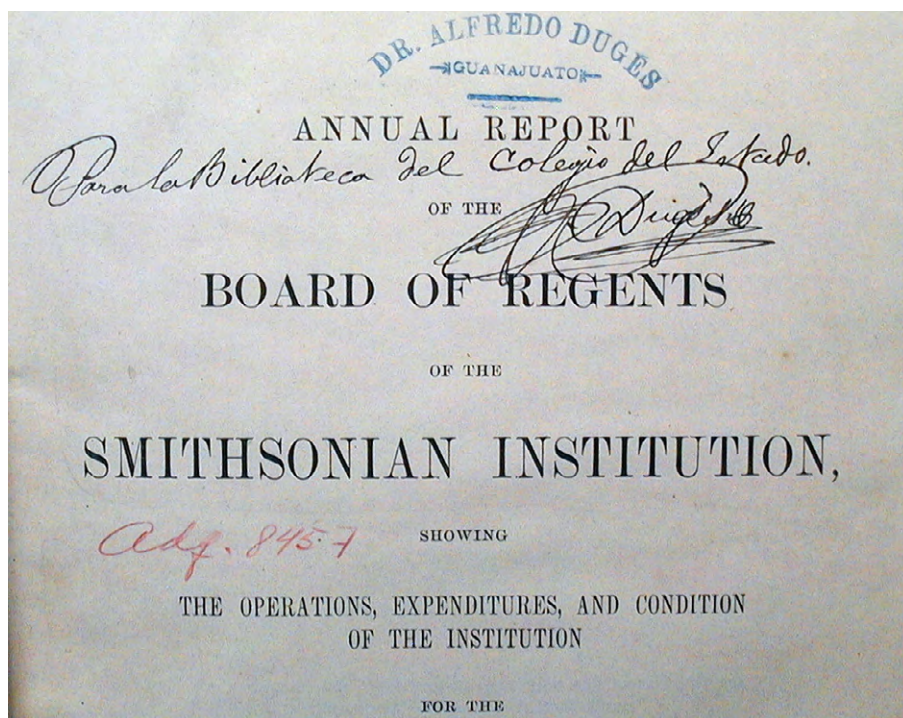 DR. ALFREDO DUGES
GUANAJUATO
ANNUAL REPORT
Para la Biblioteca del Colegio del Estado.
OF THE
A Dugès
BOARD OF REGENTS
OF THE
SMITHSONIAN INSTITUTION,
Adq. 8457
SHOWING
THE OPERATIONS, EXPENDITURES, AND CONDITION
OF THE INSTITUTION
FOR THE